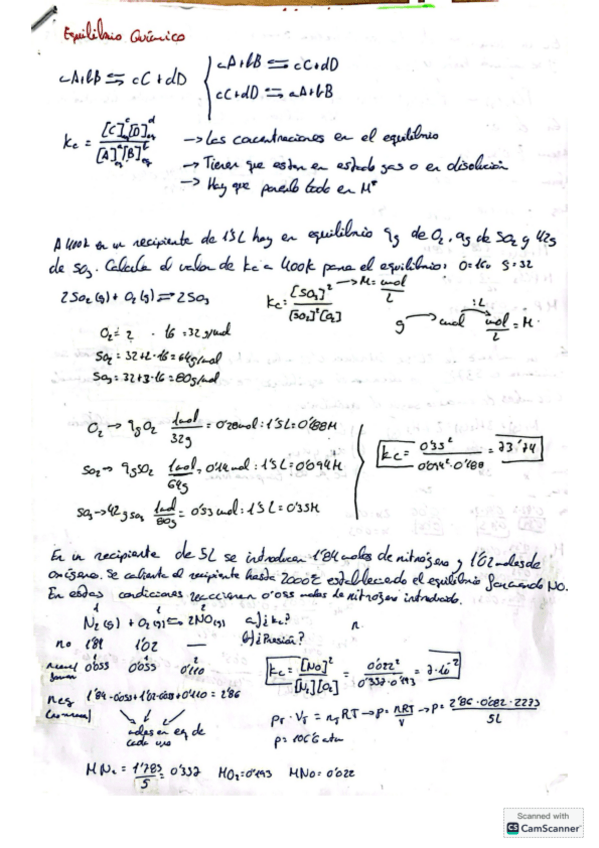 Equilibrio Químico
aA+bB ⇆ cC + dD
aA+bB ⇆ cC+dD
cC+dD ⇆ aA+bB
Kc = [C]c eq [D]d eq / [A]a eq [B]b eq
→ Las concentraciones en el equilibrio
→ Tienen que estar en estado gas o en disolución
→ Hay que ponerlo todo en M
A 400K en un recipiente de 1'5L hay en equilibrio 9g de O2, 9g de SO2 y 42g
de SO3. Calcula el valor de Kc a 400K para el equilibrio: O=16 S=32
2SO2(g) + O2(g) ⇄ 2SO3
Kc = [SO3]2 / [SO2]2 [O2] → M = mol / L
g → mol mol / L = M
:L
O2 = 2 · 16 = 32 g/mol
SO2 = 32+2·16 = 64g/mol
SO3 = 32+3·16 = 80g/mol
O2 → 9g O2 1mol / 32g = 0'28mol : 1'5L = 0'188M
SO2 → 9gSO2 1mol / 64g = 0'14mol : 1'5L = 0'094M
SO3 → 42g SO3 1mol / 80g = 0'53mol : 1'5L = 0'35M
Kc = 0'352 / 0'0942 · 0'188 = 73'74
En un recipiente de 5L se introducen 1'84 moles de nitrógeno y 1'02 moles de
oxígeno. Se calienta el recipiente hasta 2000ºC establecido el equilibrio formando NO.
En estas condiciones reaccionan 0'055 moles de nitrógeno introducido.
N2(g) + O2(g) ⇆ 2NO(g) a) ¿Kc?
no 1'84 1'02 — b) ¿Presión?
0'055 0'055 0'110
Kc = [NO]2 / [N2][O2] = 0'0222 / 0'357·0'193 = 7·10-2
neq 1'84-0'055+1'02-0'055+0'110 = 2'86
moles en eq de
cada uno
P = nRT / V → P = 2'86 · 0'082 · 2273 / 5L
P = 106'6 atm
MN2 = 1'785 / 5 = 0'357 MO2 = 0'193 MNO = 0'022
Scanned with
CS CamScanner